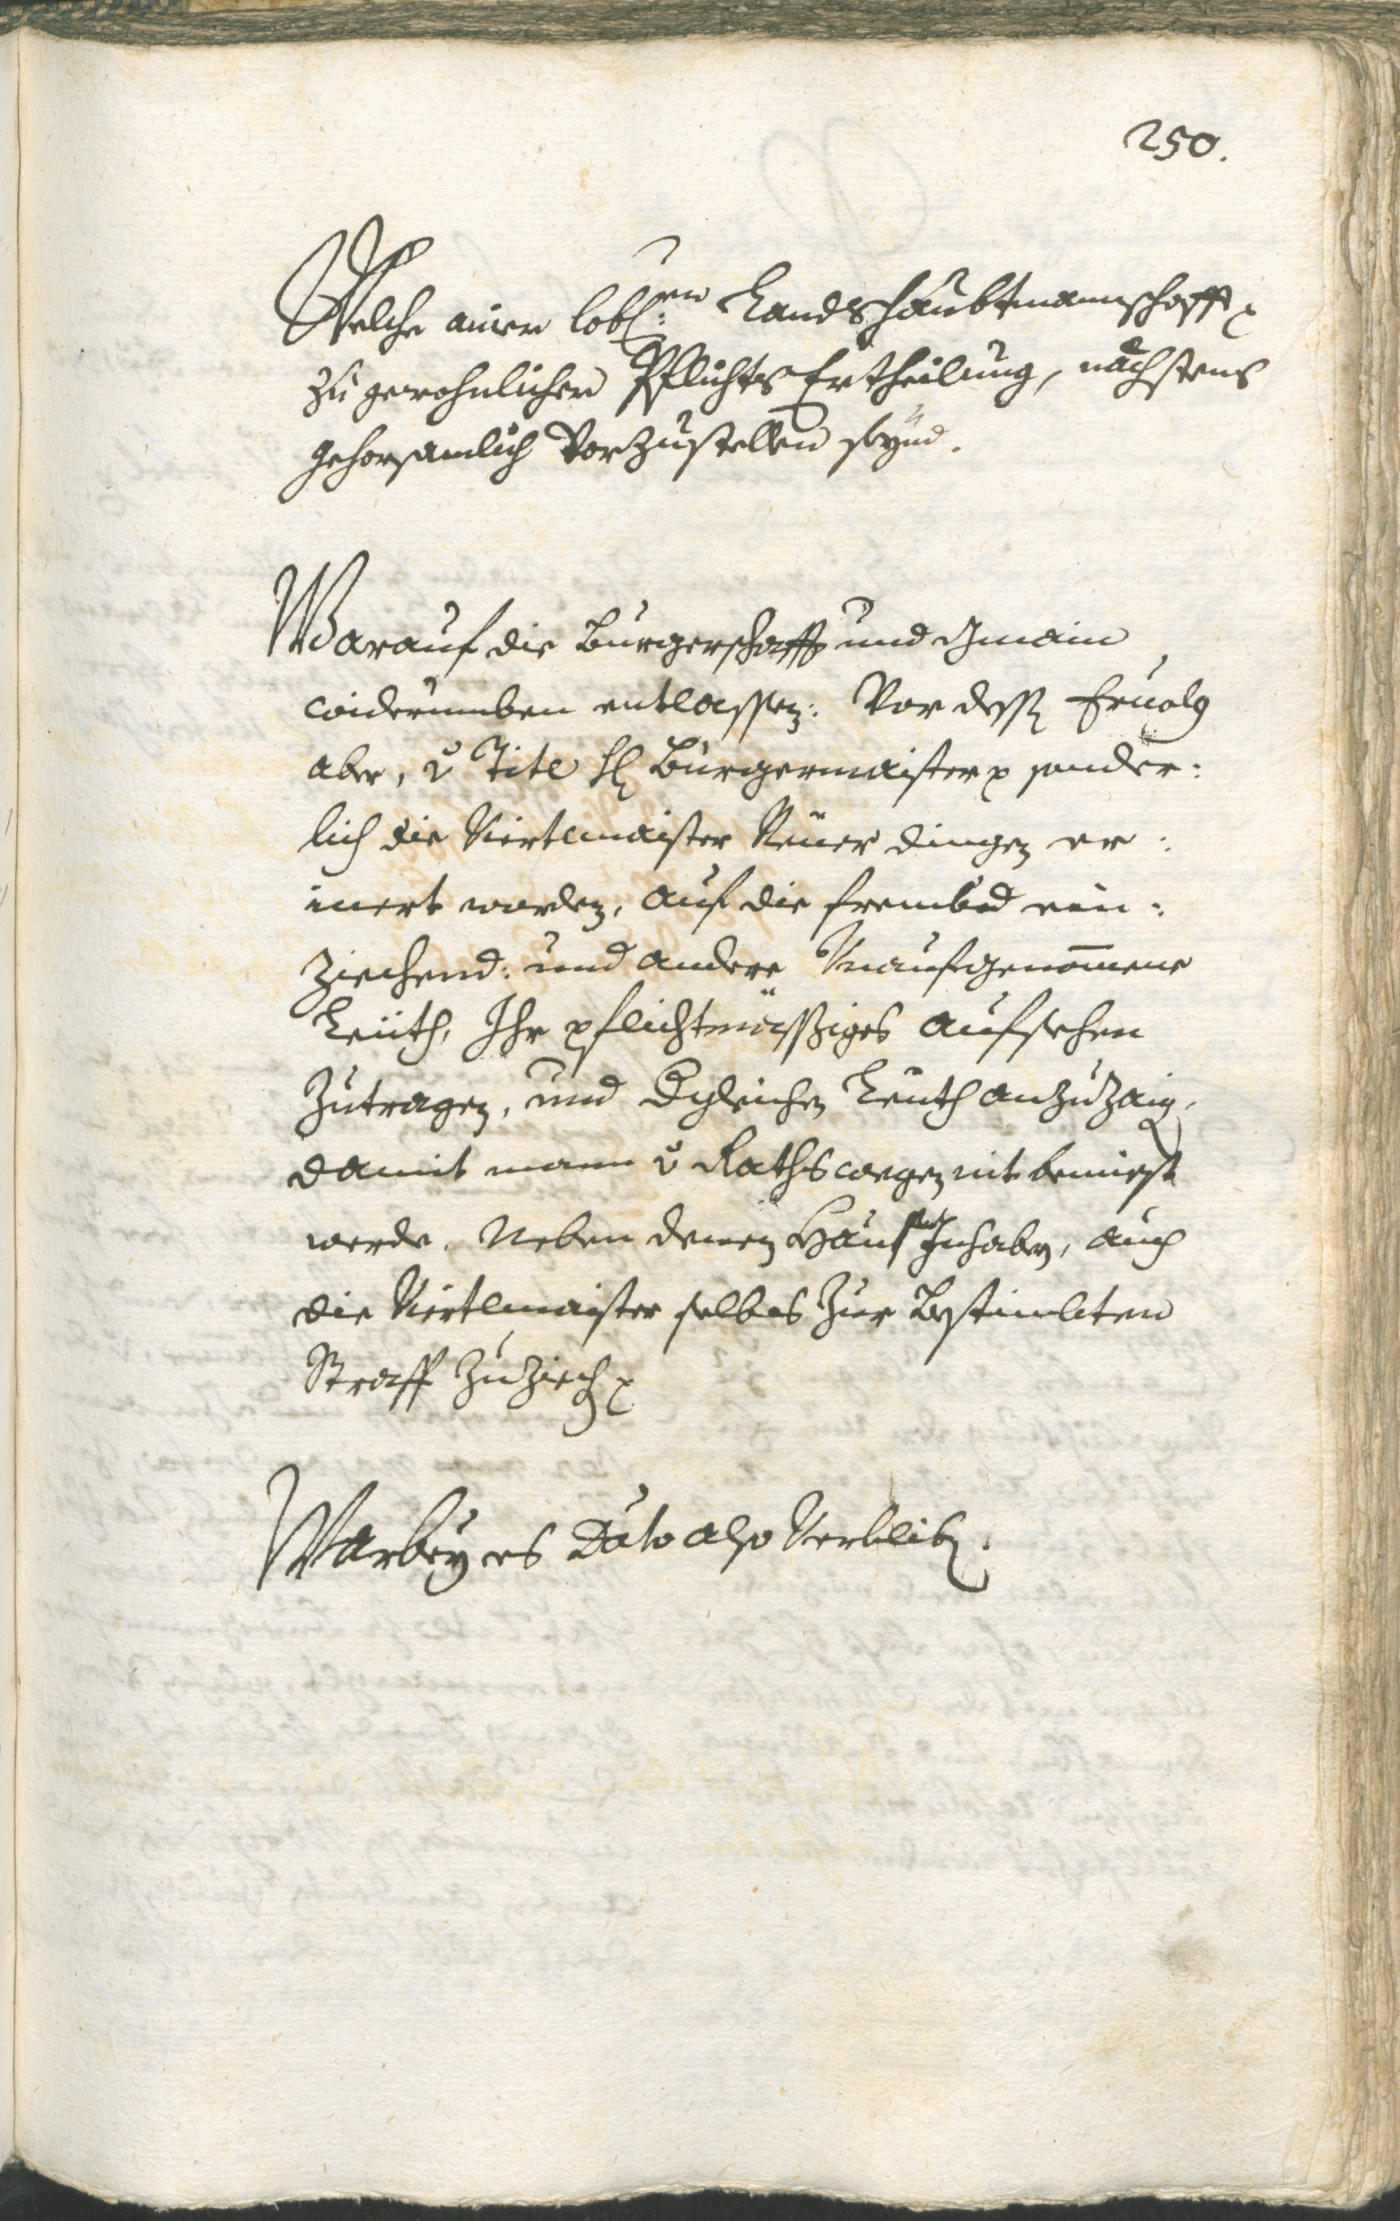 250.
Welche ainer lobl:en Landshaubtmannschafft
zu gewohnlicher Pflichts Ertheilung, nächstens
gehorsamlich vorzustellen seynd.
Warauf die Burgerschafft und Gmain
widerumben entlassen: Vor dessen Ervolg
aber, v Titl H Burgermaister sonder:
lich die Viertlmaister Neuer dingen er:
inert worden, auf die frembd ein:
ziechend: und andere Unaufgenomene
Leüth, Ihr pflichtmässiges aufsehen
zutragen, und dgleichen Leuth anzuzaig,
damit mann v Raths wegen nit bemiest
werde, Neben denen Haus Inhabern, auch
die Viertlmaister selbes zur Bestimbten
Straff zuziechen
Warbey es Dato also Verbliben.